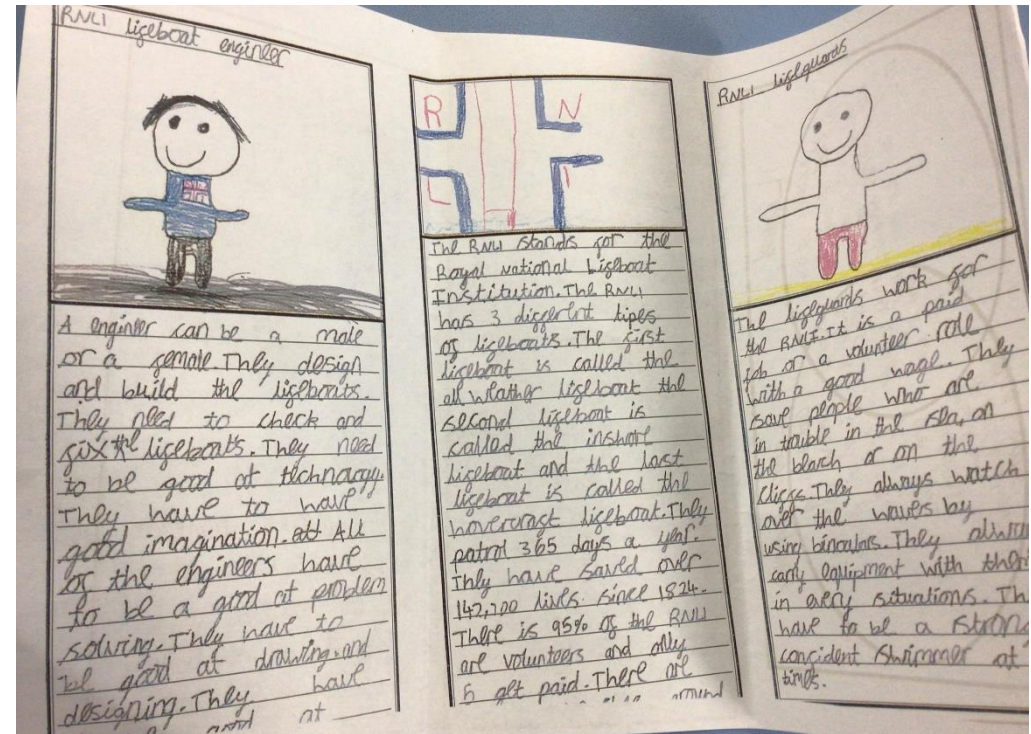 RNLI lifeboat engineer
A engineer can be a male
or a female. They design
and build the lifeboats.
They need to check and
fix the lifeboats. They need
to be good at technology.
They have to have
good imagination. All
of the engineers have
to be a good at problem
solving. They have to
be good at drawing and
designing. They have
good at
R N
L I
The RNLI stands for the
Royal National Lifeboat
Institution. The RNLI
has 3 different tipes
of lifeboats. The first
lifeboat is called the
all weather lifeboat the
second lifeboat is
called the inshore
lifeboat and the last
lifeboat is called the
hovercraft lifeboat. They
patrol 365 days a year.
They have saved over
142,700 lives since 1824.
There is 95% of the RNLI
are volunteers and only
5 get paid. There are
around
RNLI lifeguards
The lifeguards work for
the RNLI. It is a paid
job or a volunteer role
with a good wage. They
save people who are
in trouble in the sea, on
the beach or on the
cliffs. They always watch
over the waves by
using binoculars. They
carry equipment with them
in every situations.
have to be a strong
confident swimmer at
times.